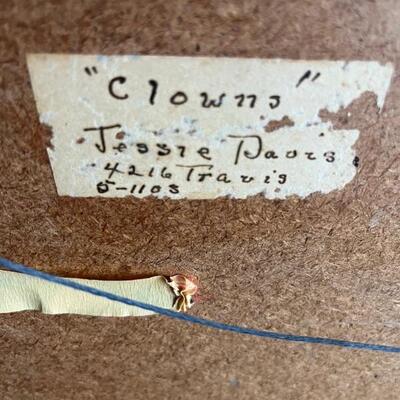 "Clowns"
Jessie Davis
4216 Travis
5-1103